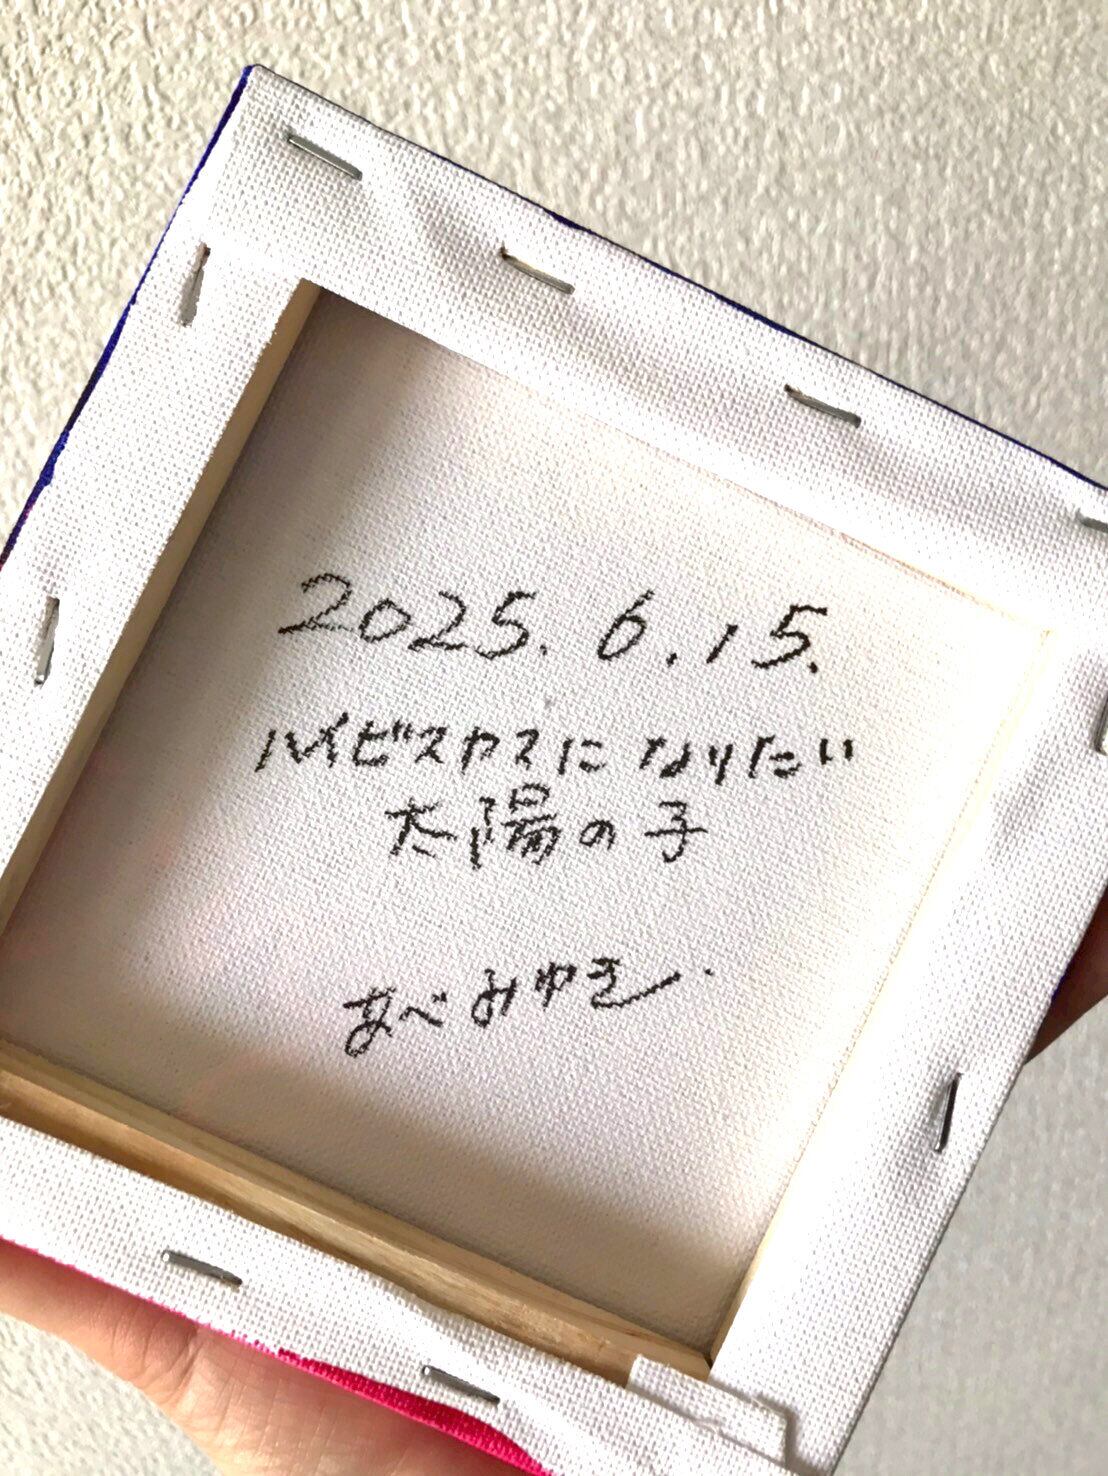 2025.6.15.
ハイビスカスになりたい
太陽の子
あべみゆき